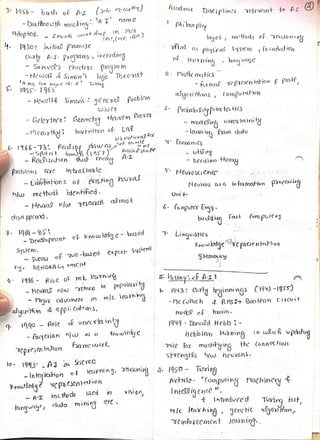 3. 1956 - birth of A-I
- Dartmouth meeting: "A I" name
adopted. - 2 month
4. 1950: initial promise
Early A-I programs, including
- Samuel's checkers program
- Newell & Simon's logic Theorist
5. 1955-1965
- Newell & Simon's general problem
solver
- Gelertner's: Geometry theorem Prover
- McCarthy: invention of LISP
6. 1966-73: Reality dawns
- Realization that many A-I
problems are intractable
- Limitations of existing neural
n/w methods identified.
- Neural n/w research almost
disappeared.
7. 1969-85:
- Development of knowledge-based
system.
- rule-based expert systems
eg. DENDRAL
8. 1986 - Rise of m/c learning
- Neural n/w return to popularity
- Major advances in m/c learning
algorithm & applications.
9. 1990 - Role of uncertainty
- Bayesian n/w as a knowledge
representation framework
10. 1995 - A-I as Science
- Integration of learning, reasoning
knowledge representation
- A-I methods used in vision,
language, data mining etc.
Academic Disciplines relevant to A-I
1. Philosophy
logic, methods of reasoning
mind as physical system, foundation
of learning, language
2. Mathematics
- formal representation & proof,
algorithms, computation
3. Probability/Statistics
- modeling uncertainty
- learning from data
4. Economics
- utility
- decision theory
5. Neuroscience
Neurons as information processing
unit
6. Computer Engg.
building fast computers
7. Linguistics
knowledge representation
grammar
History of A-I
1. 1943: Early beginnings (1943-1955)
- McCulloch & Pitts: Boolean circuit
model of brain.
1949: Donald Hebb:-
Hebbian learning in which updating
rule for modifying the connection
strengths b/w neurons.
2. 1950 - Turing
Article "Computing Machinery &
Intelligence".
& Introduced Turing test,
m/c learning, genetic algorithm,
reinforcement learning.